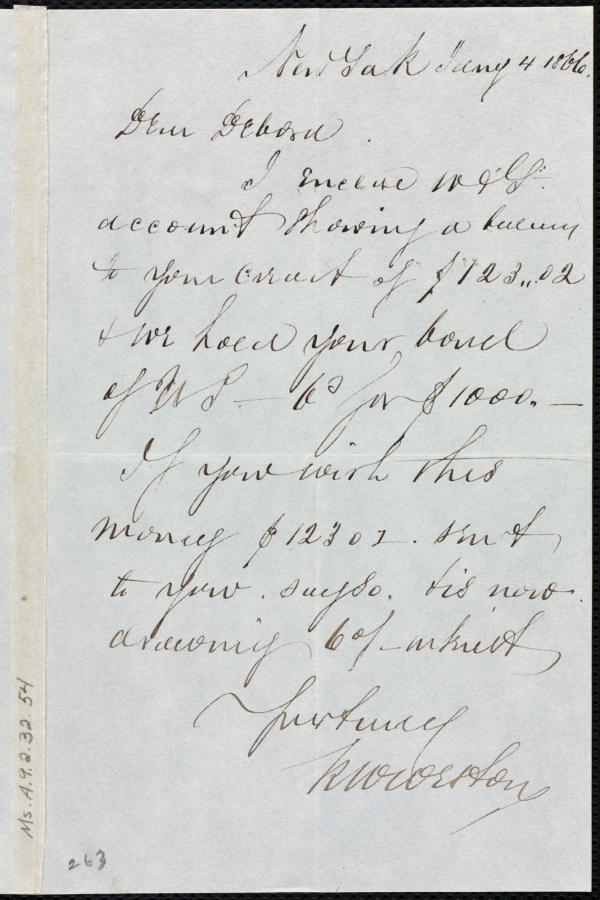 New York Jany 4 1866.
Dear Debora.
I enclose W & Co
account showing a balance
to your credit of $123,,02
& we hold your bond
of U S — 6s for $1000. —
If you wish this
money $123 02. sent
to you. say so. tis now
drawing 6% interest
Yours truly
R W Weston
263
Ms. A.9.2.32.54